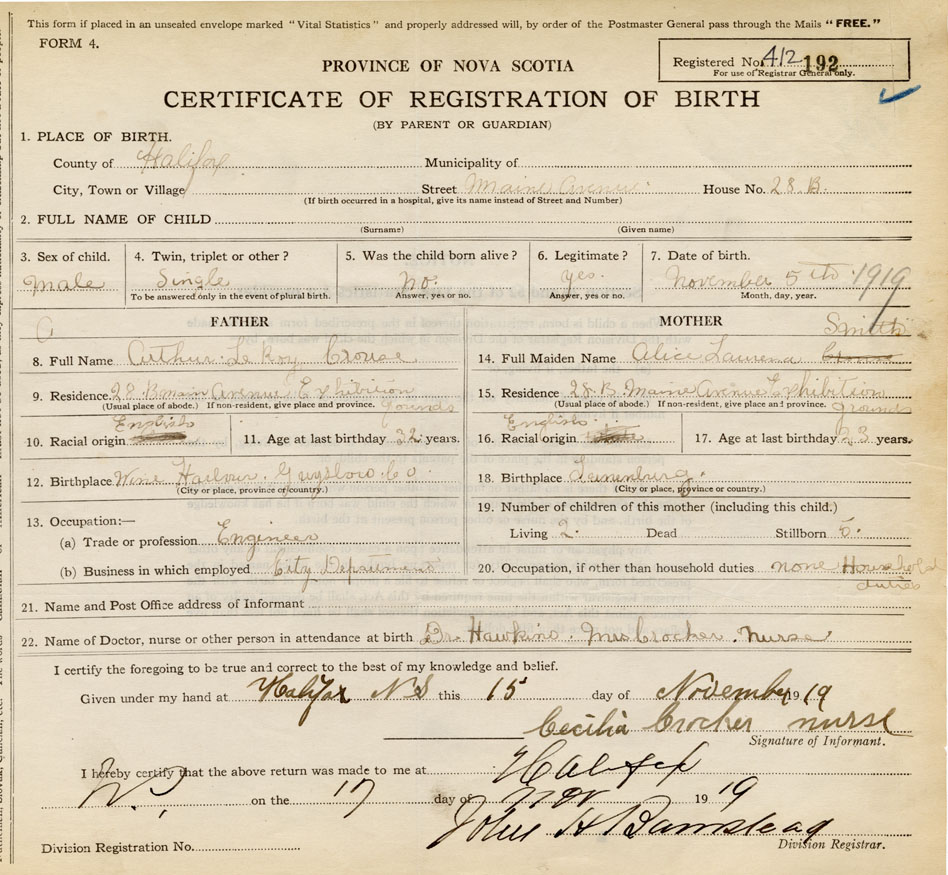 This form if placed in an unsealed envelope marked "Vital Statistics" and properly addressed will, by order of the Postmaster General pass through the Mails "FREE."
FORM 4.
Registered No. 412 192
For use of Registrar General only.
PROVINCE OF NOVA SCOTIA
CERTIFICATE OF REGISTRATION OF BIRTH
(BY PARENT OR GUARDIAN)
1. PLACE OF BIRTH.
County of Halifax Municipality of
City, Town or Village Street Maine Avenue House No. 28 B.
(If birth occurred in a hospital, give its name instead of Street and Number)
2. FULL NAME OF CHILD
(Surname) (Given name)
3. Sex of child. 4. Twin, triplet or other? 5. Was the child born alive? 6. Legitimate? 7. Date of birth.
Male Single no. yes. November 5th 1919
To be answered only in the event of plural birth. Answer, yes or no. Answer, yes or no. Month, day, year.
FATHER MOTHER
Smith
8. Full Name Arthur Le Roy Crouse 14. Full Maiden Name Alice Laurena
9. Residence. 28 B main Avenue Exhibition 15. Residence 28.B. Maine Avenue Exhibition
(Usual place of abode.) If non-resident, give place and province. Grounds (Usual place of abode.) If non-resident, give place and province. grounds
English English
10. Racial origin 11. Age at last birthday 32 years. 16. Racial origin 17. Age at last birthday 23 years.
12. Birthplace Wine Harbour. Guysboro. Co. 18. Birthplace Lunenburg.
(City or place, province or country.) (City or place, province or country.)
13. Occupation:— 19. Number of children of this mother (including this child.)
(a) Trade or profession Engineer Living 2. Dead Stillborn 5.
(b) Business in which employed City Department 20. Occupation, if other than household duties none Household
duties
21. Name and Post Office address of Informant
22. Name of Doctor, nurse or other person in attendance at birth Dr. Hawkins. Mrs Crocker. Nurse
I certify the foregoing to be true and correct to the best of my knowledge and belief.
Given under my hand at Halifax N S this 15 day of November 1919
Cecilia Crocker nurse
Signature of Informant.
I hereby certify that the above return was made to me at Halifax
N.S. on the 17 day of Nov 1919
John H Barnstead
Division Registration No. Division Registrar.